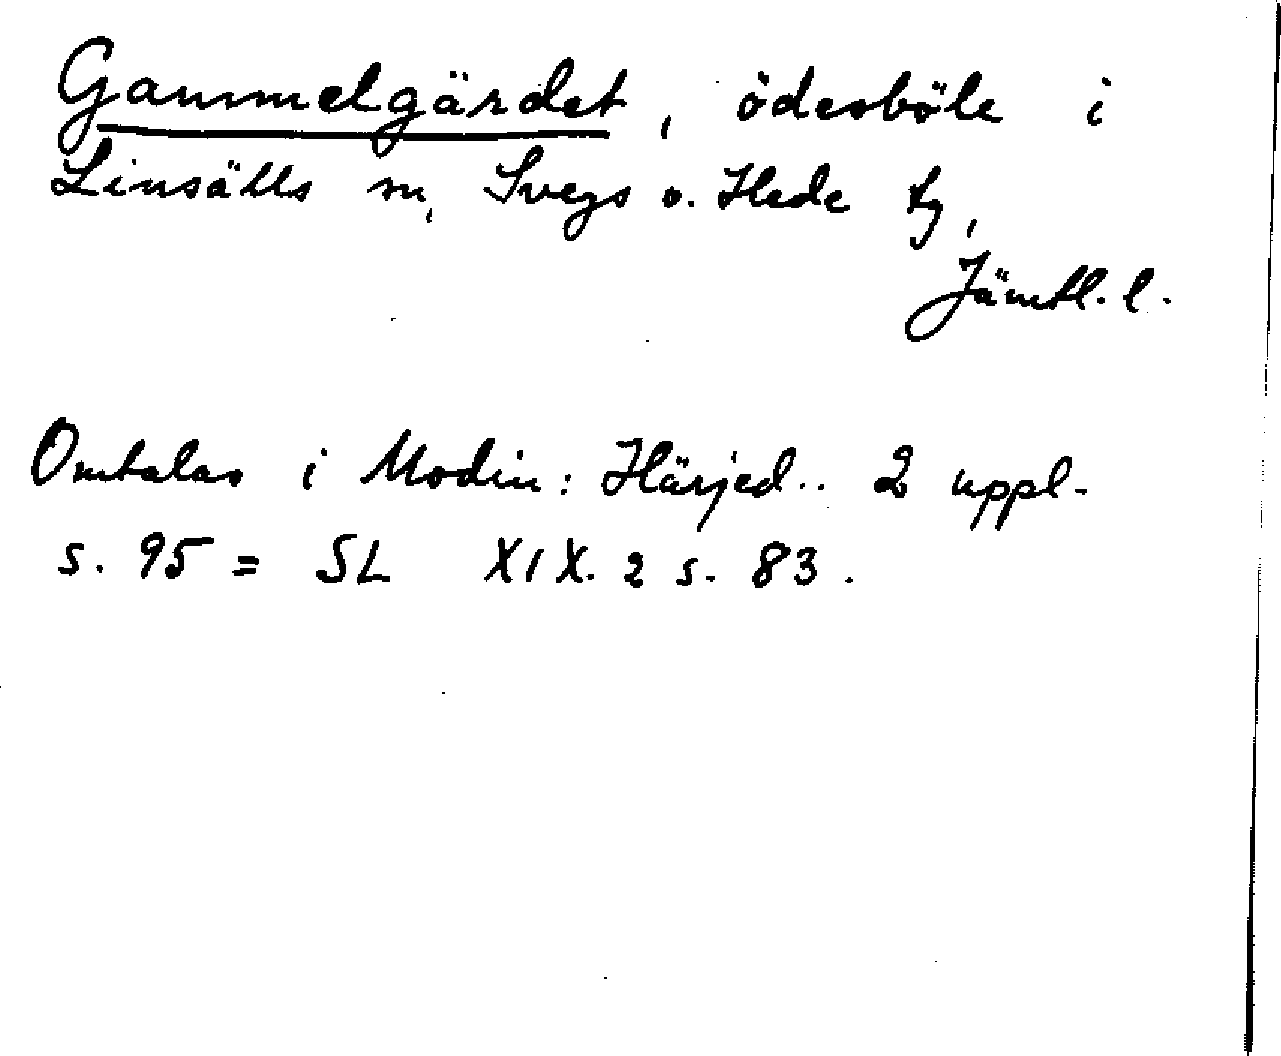 Gammelgärdet, ödesböle i
Linsälls sn, Svegs o. Hede tg,
Jämtl. l.
Omtalas i Modin: Härjed.. 2 uppl.
s. 95 = SL XIX. 2 s. 83.